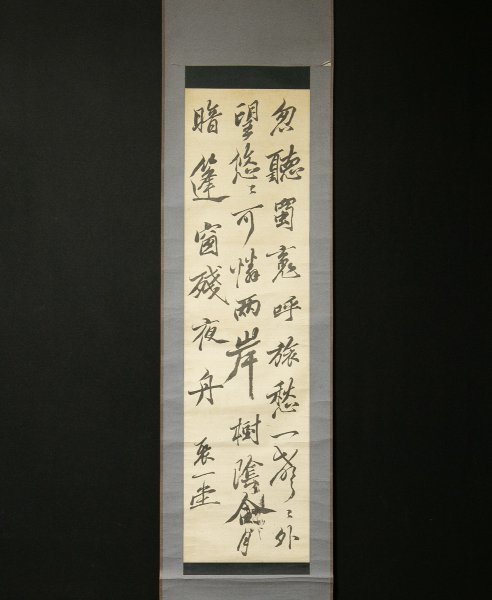 忽聽蜀魂呼旅愁一聲〻外
望悠〻可憐兩岸樹陰合月
暗篷窗殘夜舟